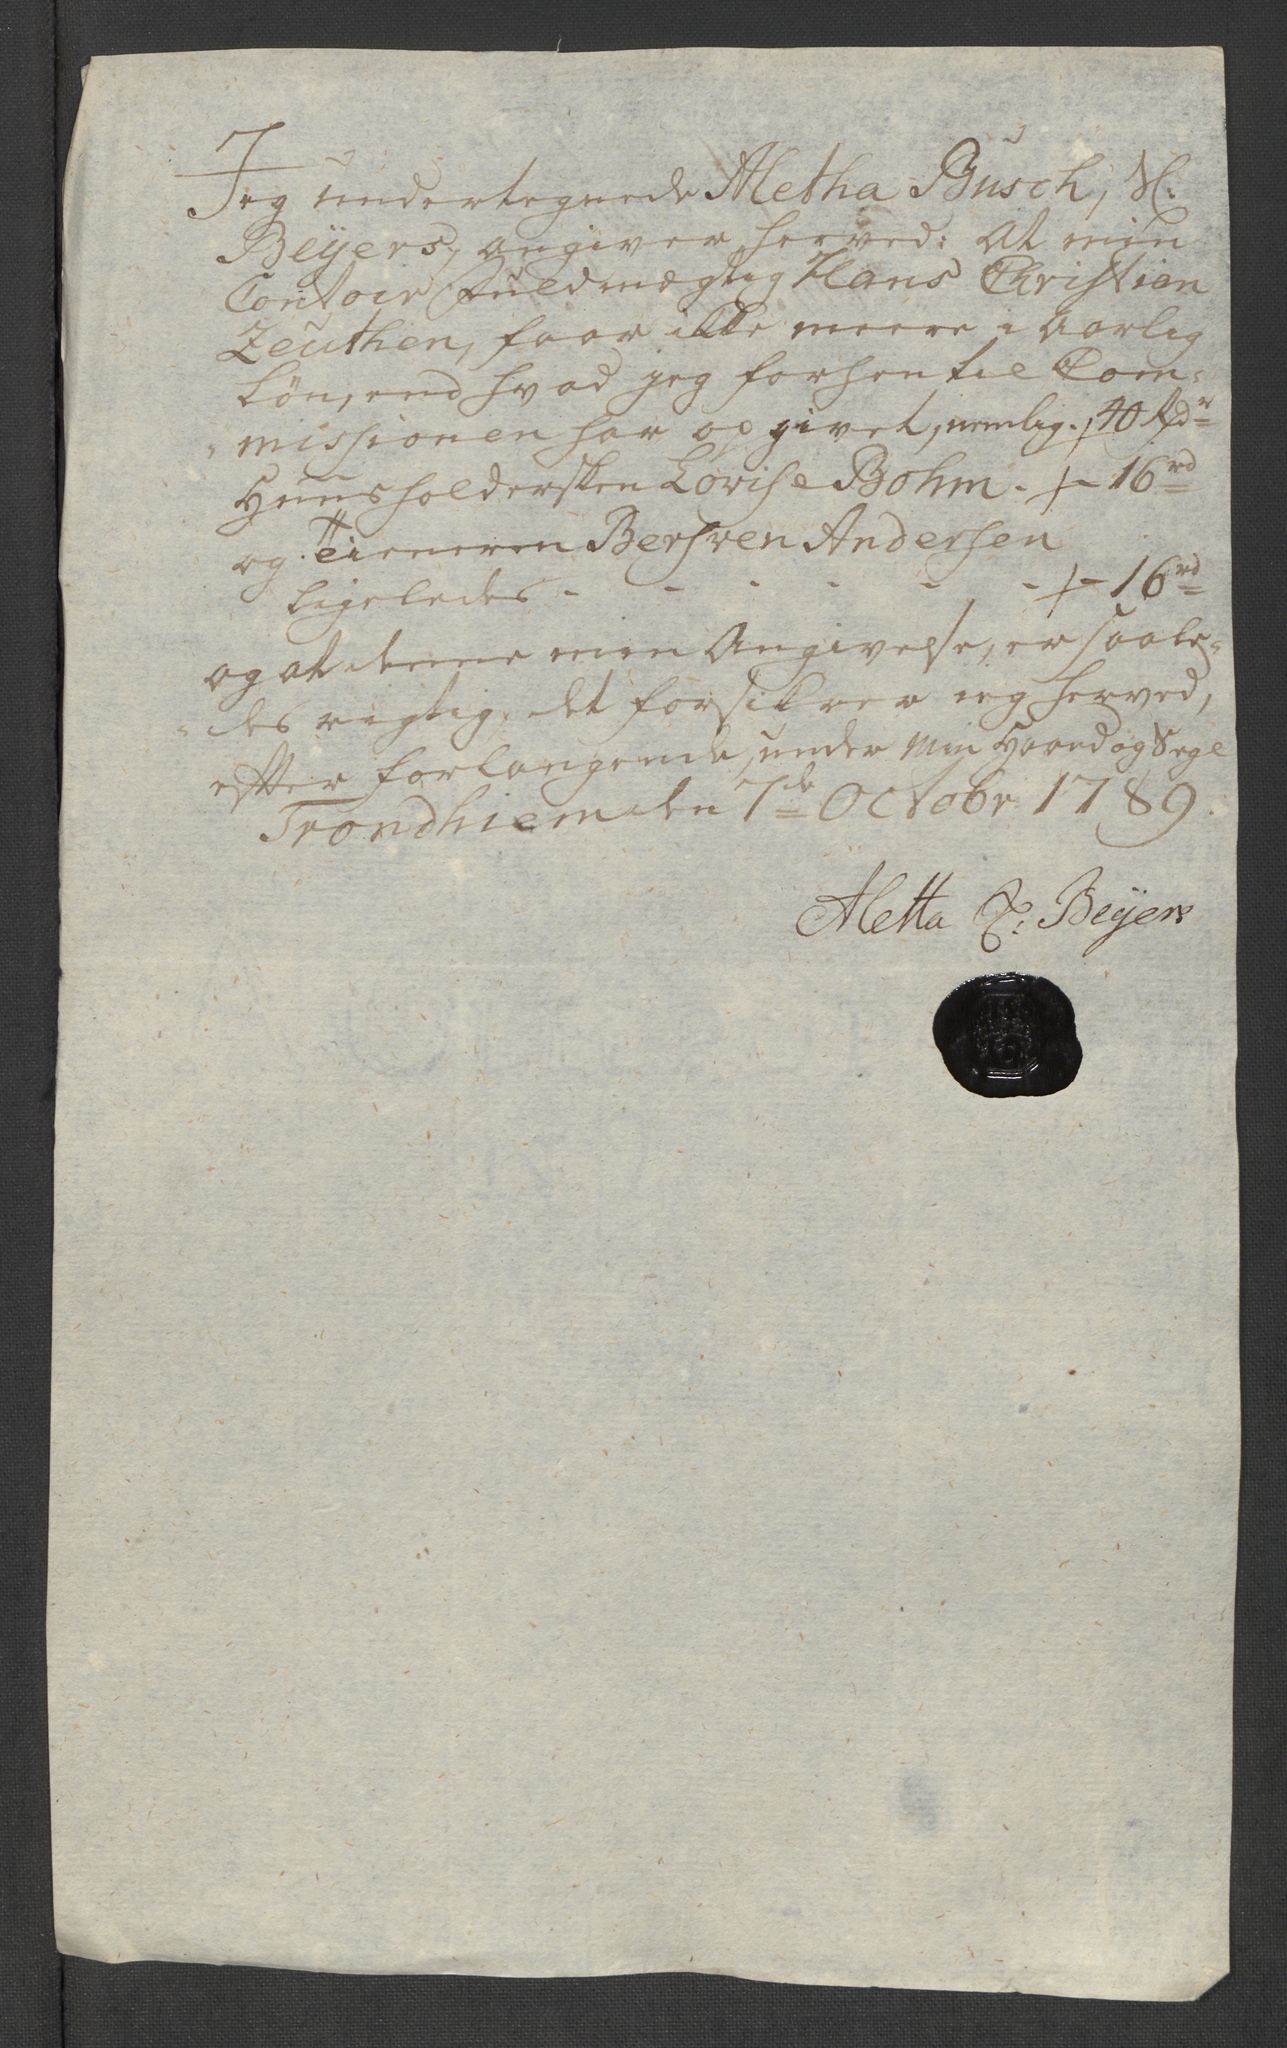 Jeg undertegnede Aletha Busch, Sl:
Beÿers, angiver herved: at min
Contoir Fuldmægtig Hans Christian
Zeuthen, faar ikke meere i aarlig
Løn, end hvad jeg forhen til Com=
=missionen har opgivet, nemlig. / 40 Rdr
Huusholdersken Lovise Bohm - / - 16 rd
og Tieneren Behren Andersen
ligeledes - - - - - - / - 16 rd
og at denne min Angivelse, er saale=
=des rigtig, det forsikrer jeg herved,
efter forlangende, under Min Haand og Segl
Trondhiem den 7de Octobr 1789.
Aletta Sl: Beÿers